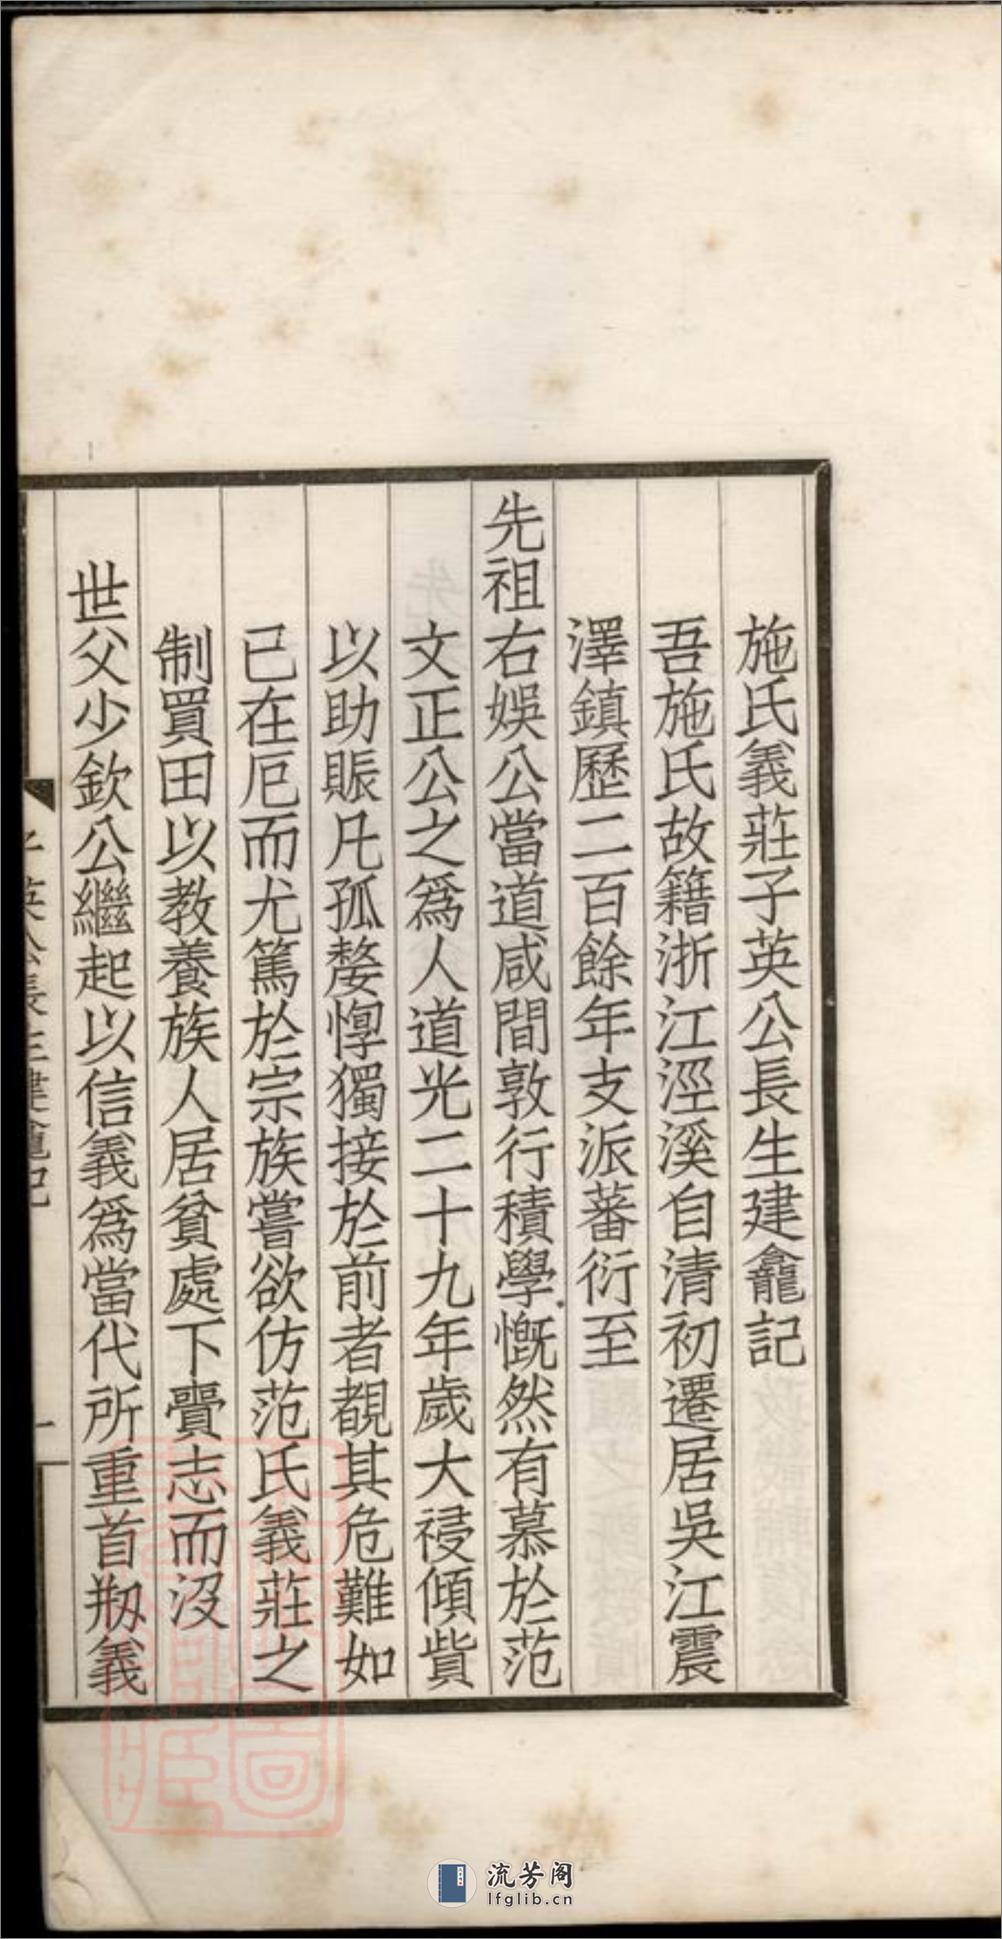 施氏義莊子英公長生建龕記
吾施氏故籍浙江涇溪自清初遷居吳江震
澤鎮歷二百餘年支派蕃衍至
先祖右娛公當道咸間敦行積學慨然有慕於范
文正公之爲人道光二十九年歲大祲傾貲
以助賑凡孤嫠惸獨接於前者覩其危難如
已在厄而尤篤於宗族嘗欲仿范氏義莊之
制買田以教養族人居貧處下賷志而沒
世父少欽公繼起以信義爲當代所重首剏義
子英公長生建龕記
一
流芳阁
lfglib.cn